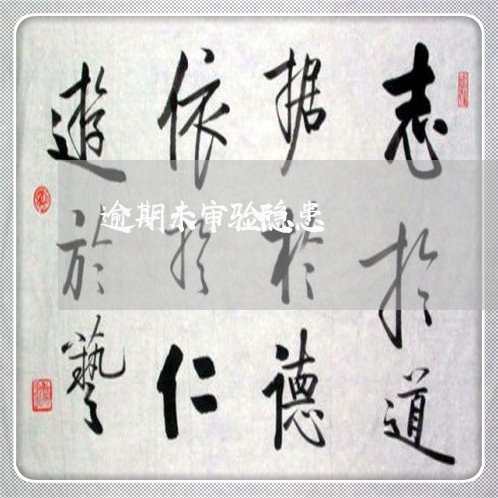 志於道
据於德
依於仁
遊於藝
逾期未审验隐患